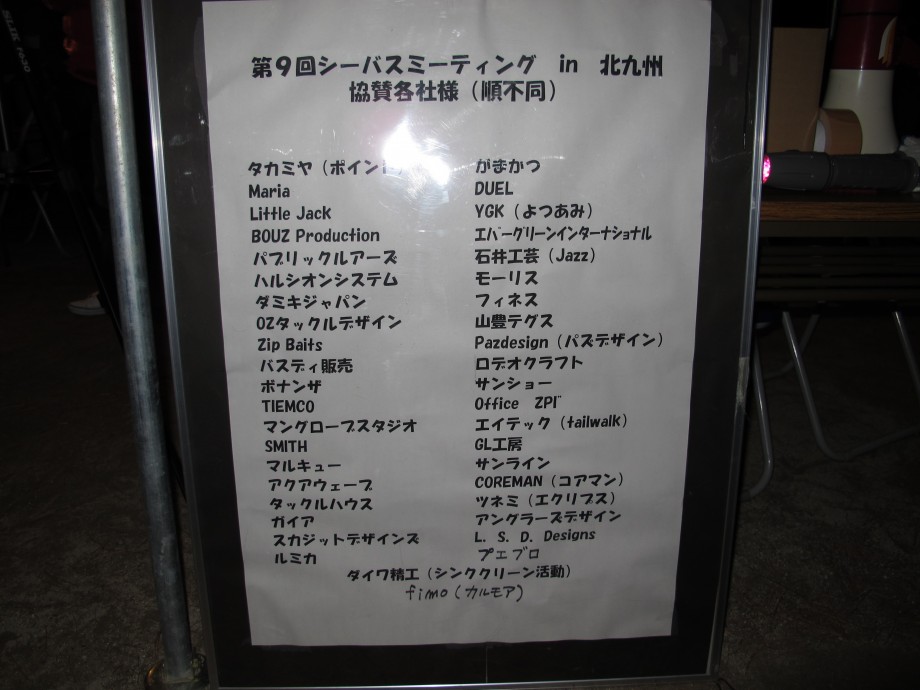 第9回シーバスミーティング in 北九州
協賛各社様（順不同）
タカミヤ（ポイント） がまかつ
Maria DUEL
Little Jack YGK（よつあみ）
BOUZ Production エバーグリーンインターナショナル
パブリックルアーズ 石井工芸（Jazz）
ハルシオンシステム モーリス
ダミキジャパン フィネス
OZタックルデザイン 山豊テグス
Zip Baits Pazdesign（パズデザイン）
バスディ販売 ロデオクラフト
ボナンザ サンショー
TIEMCO Office ZPI
マングローブスタジオ エイテック（tailwalk）
SMITH GL工房
マルキュー サンライン
アクアウェーブ COREMAN（コアマン）
タックルハウス ツネミ（エクリプス）
ガイア アングラーズデザイン
スカジットデザインズ L. S. D. Designs
ルミカ プエブロ
ダイワ精工（シンククリーン活動）
fimo（カルモア）